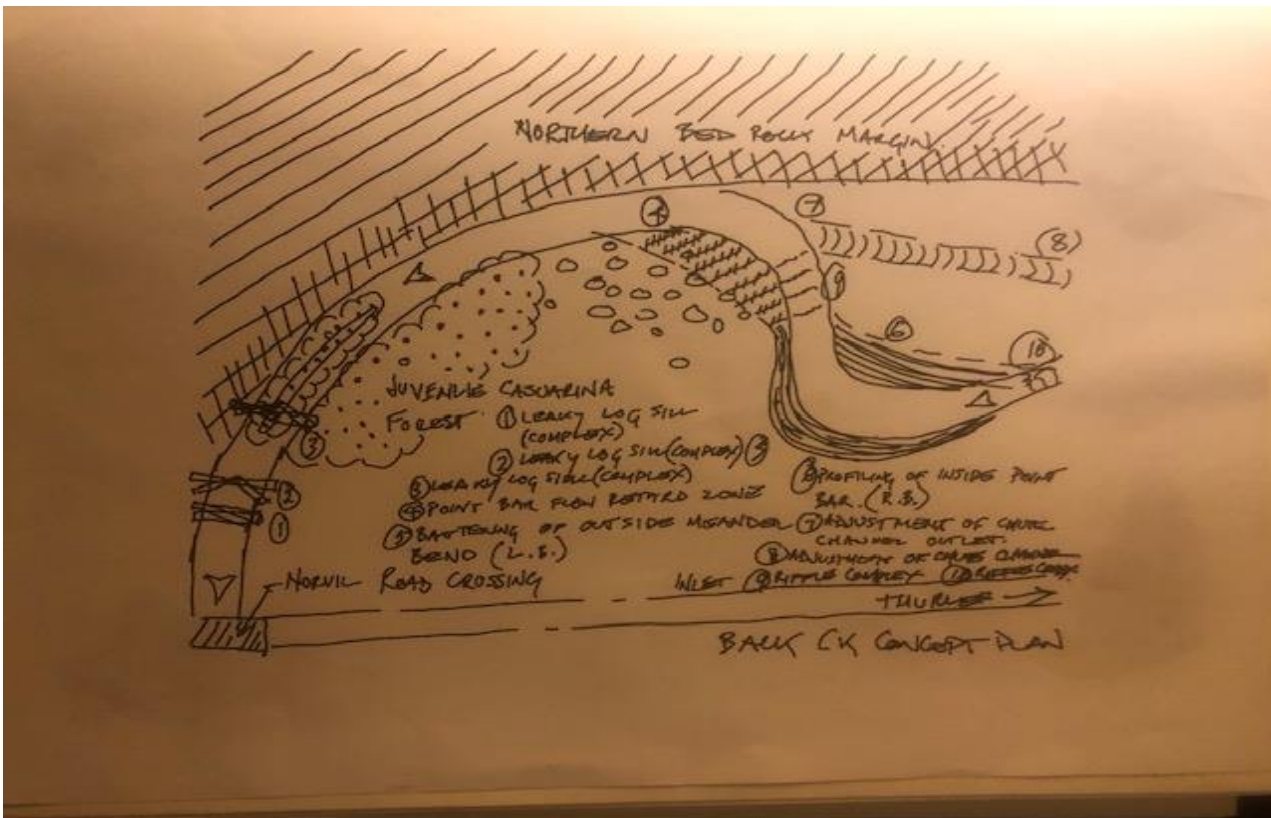 NORTHERN BED ROCK MARGIN
4
7
8
9
6
10
5
JUVENILE CASUARINA
FOREST
① LEAKY LOG SILL
(COMPLEX)
② LEAKY LOG SILL (COMPLEX)
③ LEAKY LOG SILL (COMPLEX)
④ POINT BAR FLOW RETARD ZONE
⑤ BATTERING OF OUTSIDE MEANDER
BEND (L.B.)
⑥ PROFILING OF INSIDE POINT
BAR. (R.B.)
⑦ ADJUSTMENT OF CHUTE
CHANNEL OUTLET.
⑧ ADJUSTMENT OF CHUTE CHANNEL
INLET ⑨ RIFFLE COMPLEX ⑩ RIFFLE COMPLEX
3
2
1
ROAD CROSSING
BACK CK CONCEPT PLAN